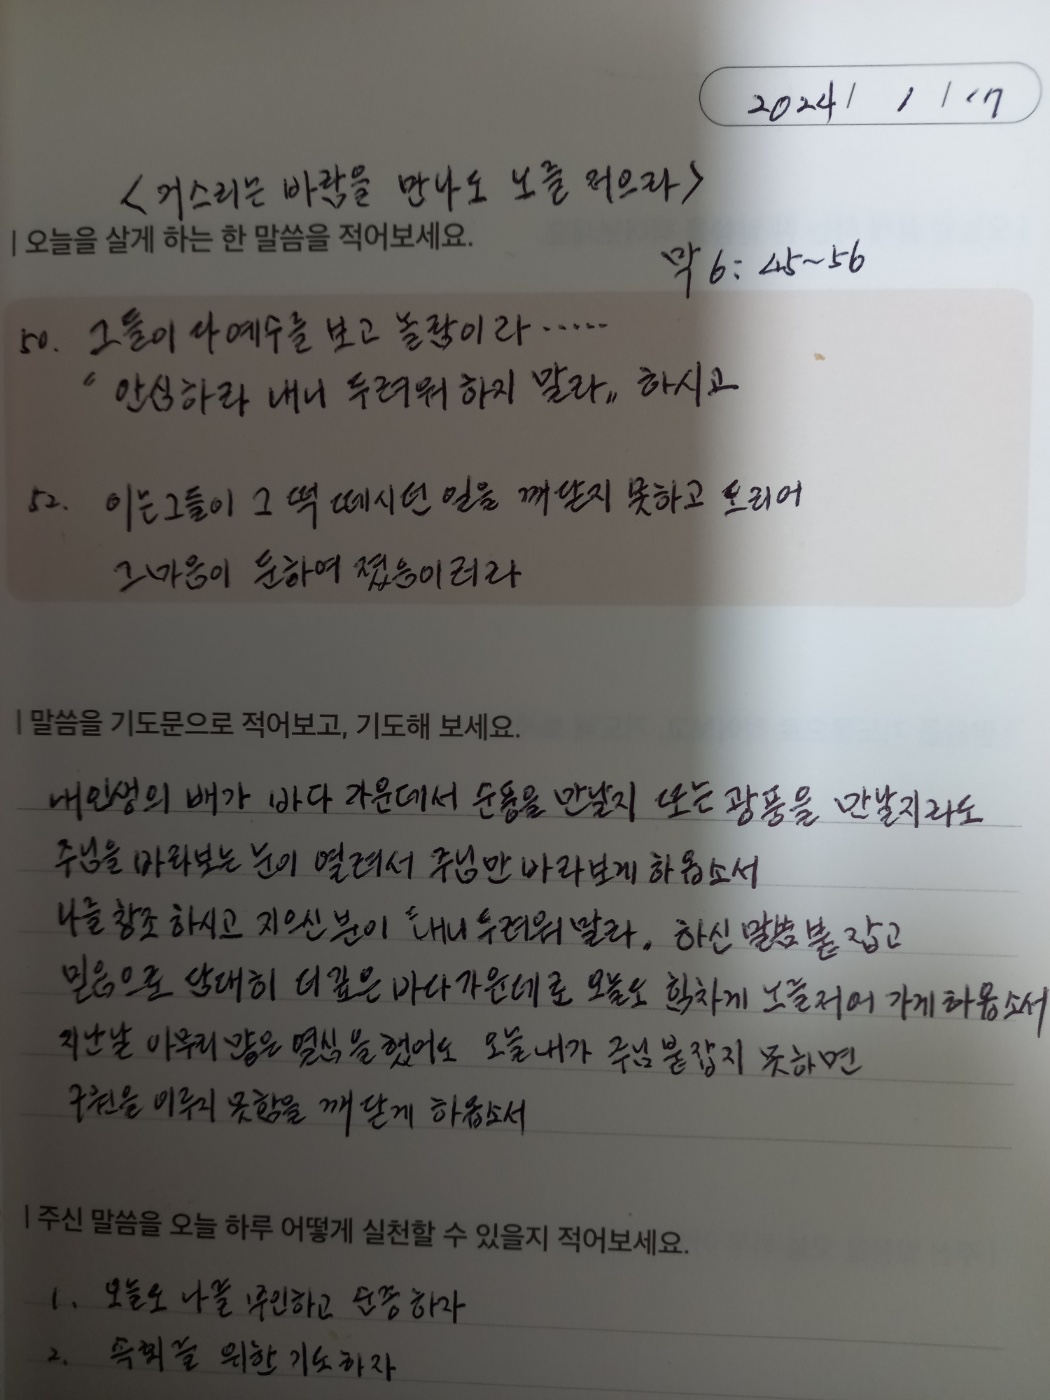 2024 / 1 / 17
<거스리는 바람을 만나도 노를 저으라>
| 오늘을 살게 하는 한 말씀을 적어보세요.
막 6: 45~56
50. 그들이 다 예수를 보고 놀람이라······
"안심하라 내니 두려워 하지 말라" 하시고
52. 이는 그들이 그 떡 떼시던 일을 깨닫지 못하고 도리어
그 마음이 둔하여 졌음이러라
| 말씀을 기도문으로 적어보고, 기도해 보세요.
내 인생의 배가 바다 가운데서 순풍을 만날지 또는 광풍을 만날지라도
주님을 바라보는 눈이 열려서 주님만 바라보게 하옵소서
나를 창조 하시고 지으신 분이 "내니 두려워 말라" 하신 말씀 붙잡고
믿음으로 담대히 더 깊은 바다 가운데로 오늘도 힘차게 노를 저어 가게 하옵소서
지난날 아무리 많은 열심을 했어도 오늘 내가 주님 붙잡지 못하면
구원을 이루지 못함을 깨닫게 하옵소서
| 주신 말씀을 오늘 하루 어떻게 실천할 수 있을지 적어보세요.
1. 오늘도 나를 부인하고 순종하자
2. 속회를 위한 기도하자